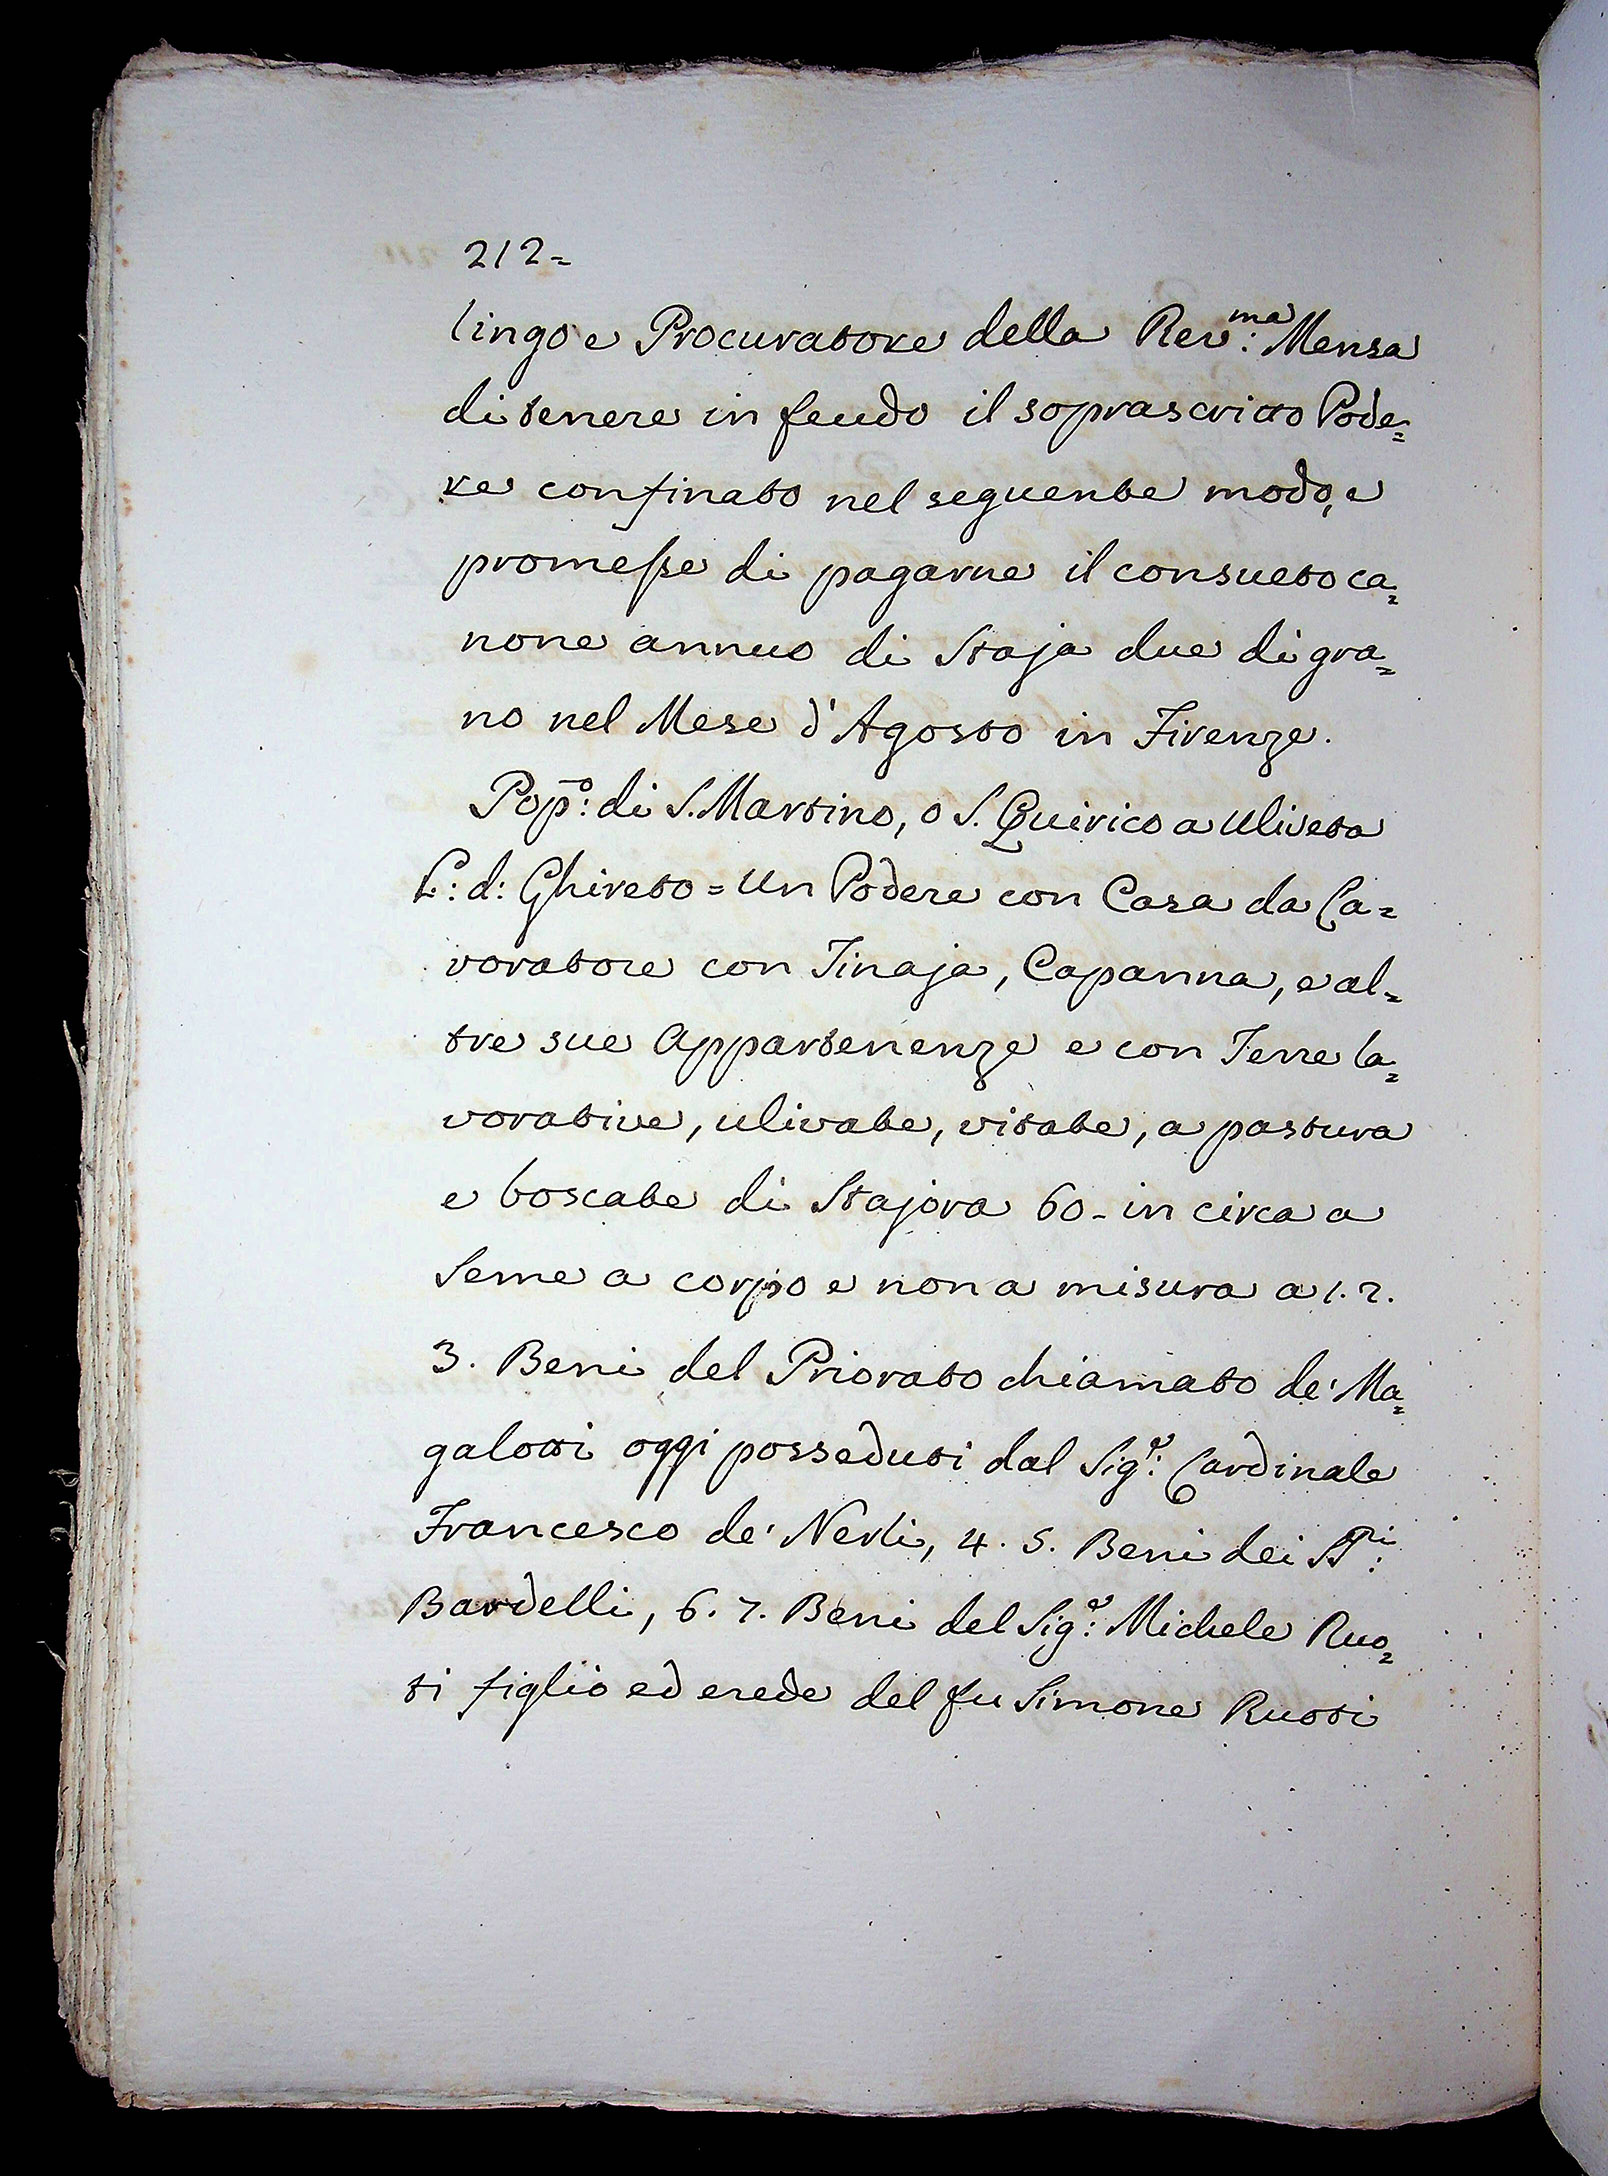 212=
lingo e Procuratore della Rev:ma Mensa
di tenere in feudo il soprascritto Pode=
re confinato nel seguente modo, e
promesse di pagarne il consueto ca=
none annuo di Staja due di gra=
no nel Mese d'Agosto in Firenze.
Pop:o di S. Martino, o S. Quirico a Uliveta
L: d: Ghireto = Un Podere con Casa da La=
voratore con Tinaja, Capanna, e al=
tre sue Appartenenze e con Terre la=
vorative, ulivate, vitate, a pastura
e boscate di Stajora 60 - in circa a
Seme a corpo e non a misura a 1. 2.
3. Beni del Priorato chiamato de' Ma=
galotti oggi posseduti dal Sig:e Cardinale
Francesco de' Nerli, 4. 5. Beni dei SS:ri
Bardelli, 6. 7. Beni del Sig:e Michele Ruo=
ti figlio ed erede del fu Simone Ruoti